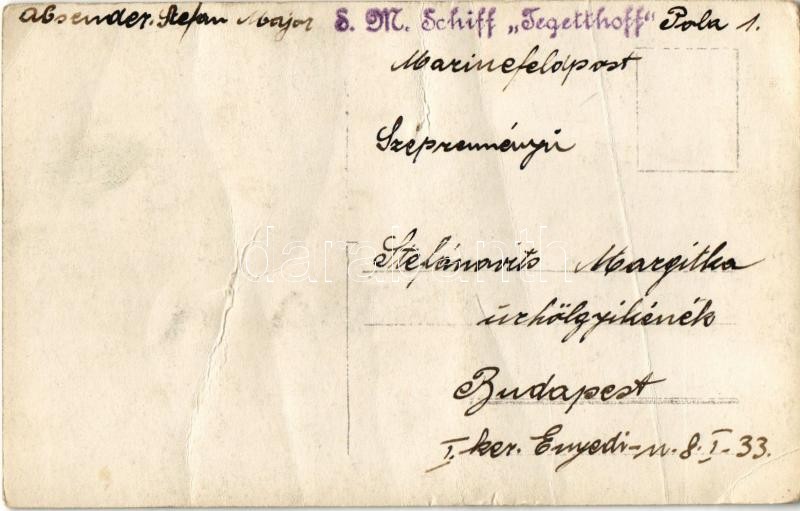 Absender. Stefan Major S. M. Schiff „Tegetthoff" Pola 1.
Marinefeldpost
Szépreményű
Stefánovits Margitka
úrhölgyikének
Budapest
I. ker. Enyedi-u. 8. I-33.
darabanth